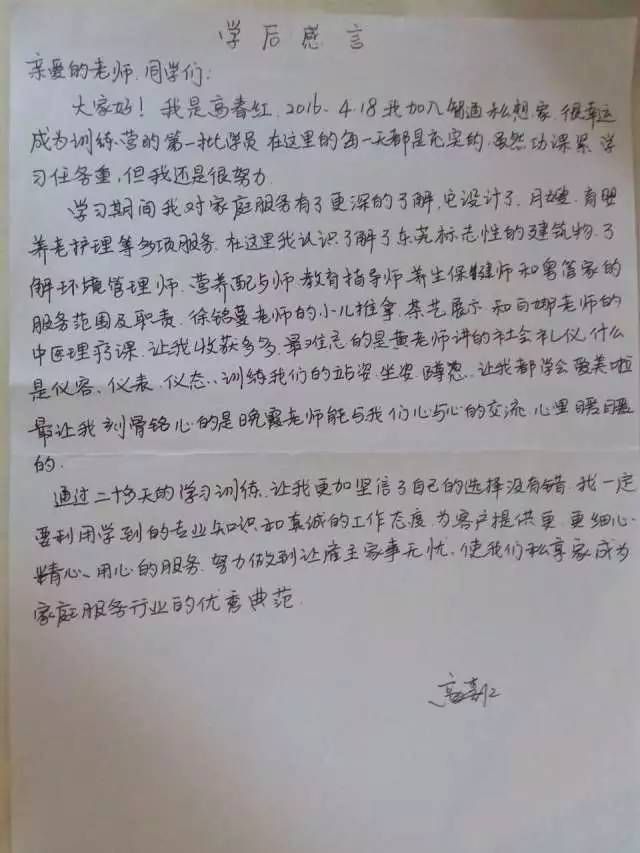 学后感言
亲爱的老师.同学们:
大家好！我是高春红，2016.4.18我加入智通私想家.很幸运
成为训练营的第一批学员 在这里的每一天都是充实的.虽然功课紧 学
习任务重，但我还是很努力.
学习期间我对家庭服务有了更深的了解，它设计了.月嫂.育婴
养老护理等多项服务.在这里我认识了解了东莞标志性的建筑物.了
解环境管理师.营养配与师.教育指导师 养生保健师和粤管家的
服务范围及职责.徐铭蔓老师的小儿推拿.茶艺展示.和老师的
中医理疗课.让我收获多多.最难忘的是黄老师讲的社会礼仪.什么
是仪容、仪表.仪态..训练我们的站姿.坐姿.蹲姿..让我都学会爱美啦
最让我刻骨铭心的是晓霞老师能与我们心与心的交流.心里暖暖
的.
通过二十多天的学习训练.让我更加坚信了自己的选择没有错.我一定
要利用学到的专业知识和真诚的工作态度.为客户提供更.更细心
精心、用心的服务.努力做到让雇主家事无忧.使我们私享家成为
家庭服务行业的优秀典范.
高春红